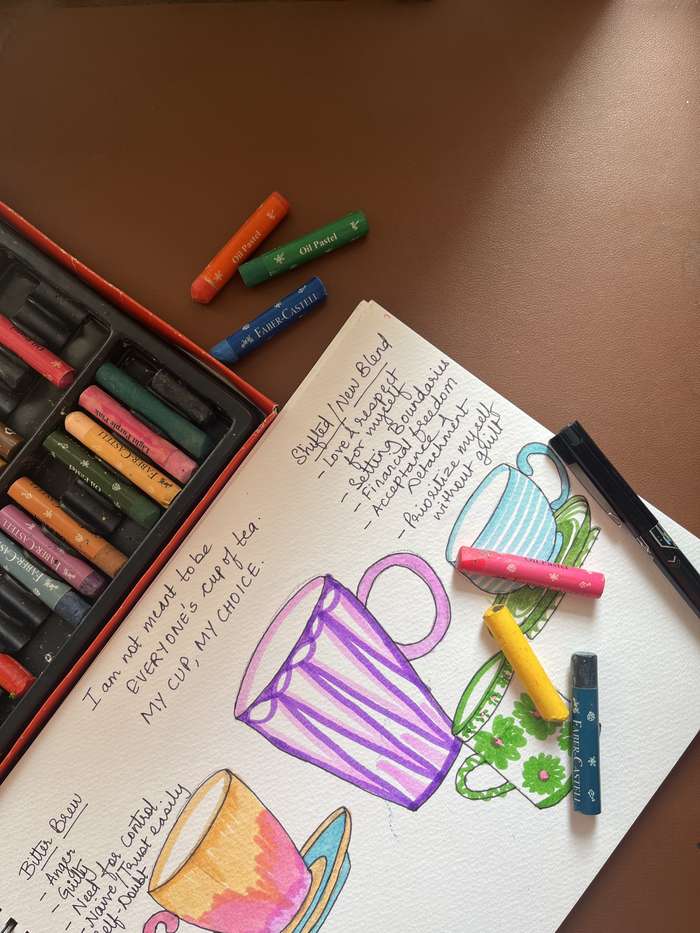 Oil Pastel
Oil Pastel
FABER-CASTELL
Light Purple Pink
FABER-CASTELL
FABER-CASTELL
FABER-CASTELL
Shifted/New Blend
- Love & respect
for myself
- Setting Boundaries
- Financial freedom
- Acceptance &
Detachment
- Prioritize myself
without guilt
I am not meant to be
EVERYONE'S cup of tea.
MY CUP, MY CHOICE.
FABER-CASTELL
FABER-CASTELL
Bitter Brew
- Anger
- Guilt
- Need for control
- Naive/Trust easily
Self-Doubt